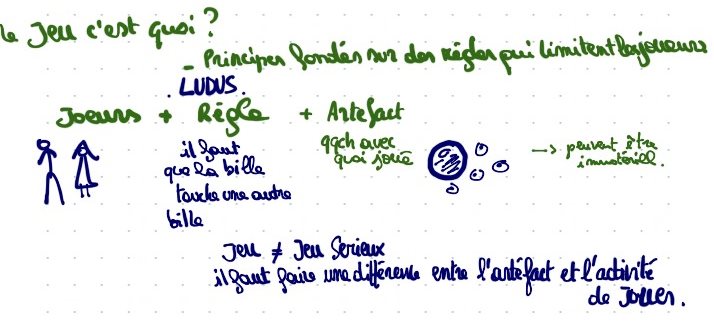 le Jeu c'est quoi ?
- Principes fondés sur des règles qui limitent les joueurs
. LUDUS.
Joeurs + Règle + Artefact
il faut
que la bille
touche une autre
bille
qqch avec
quoi joué
-> peuvent être
immatériel.
Jeu ≠ Jeu Serieux
il faut faire une différence entre l'artéfact et l'activité
de Jouer.